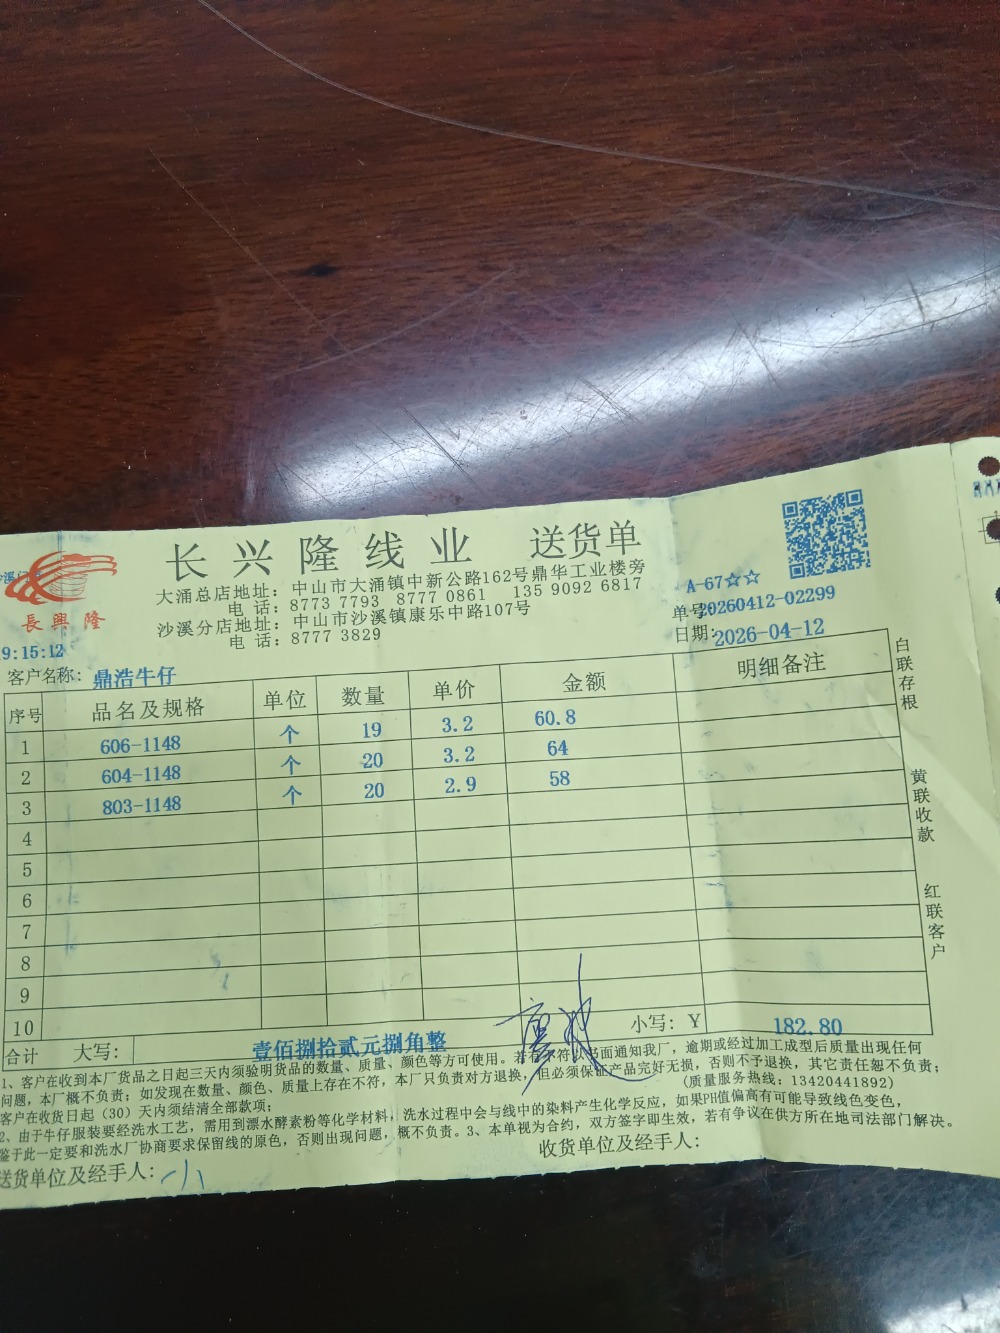 长兴隆线业 送货单
大涌总店地址：中山市大涌镇中新公路162号鼎华工业楼旁
电 话：8773 7793 8777 0861 135 9092 6817
沙溪分店地址：中山市沙溪镇康乐中路107号
电 话：8777 3829
長興隆
A-67☆☆
单号:20260412-02299
日期:2026-04-12
9:15:12
客户名称：鼎浩牛仔
序号 品名及规格 单位 数量 单价 金额 明细备注
1 606-1148 个 19 3.2 60.8
2 604-1148 个 20 3.2 64
3 803-1148 个 20 2.9 58
4
5
6
7
8
9
10
合计 大写：壹佰捌拾贰元捌角整 小写：Y 182.80
白联存根 黄联收款 红联客户
1、客户在收到本厂货品之日起三天内须验明货品的数量、质量、颜色等方可使用。若有不符以书面通知我厂，逾期或经过加工成型后质量出现任何
问题，本厂概不负责；如发现在数量、颜色、质量上存在不符，本厂只负责对方退换，但必须保证产品完好无损，否则不予退换，其它责任恕不负责；
客户在收货日起（30）天内须结清全部款项；
(质量服务热线：13420441892)
2、由于牛仔服装要经洗水工艺，需用到漂水酵素粉等化学材料，洗水过程中会与线中的染料产生化学反应，如果PH值偏高有可能导致线色变色，
鉴于此一定要和洗水厂协商要求保留线的原色，否则出现问题，概不负责。3、本单视为合约，双方签字即生效，若有争议在供方所在地司法部门解决。
送货单位及经手人：小
收货单位及经手人：